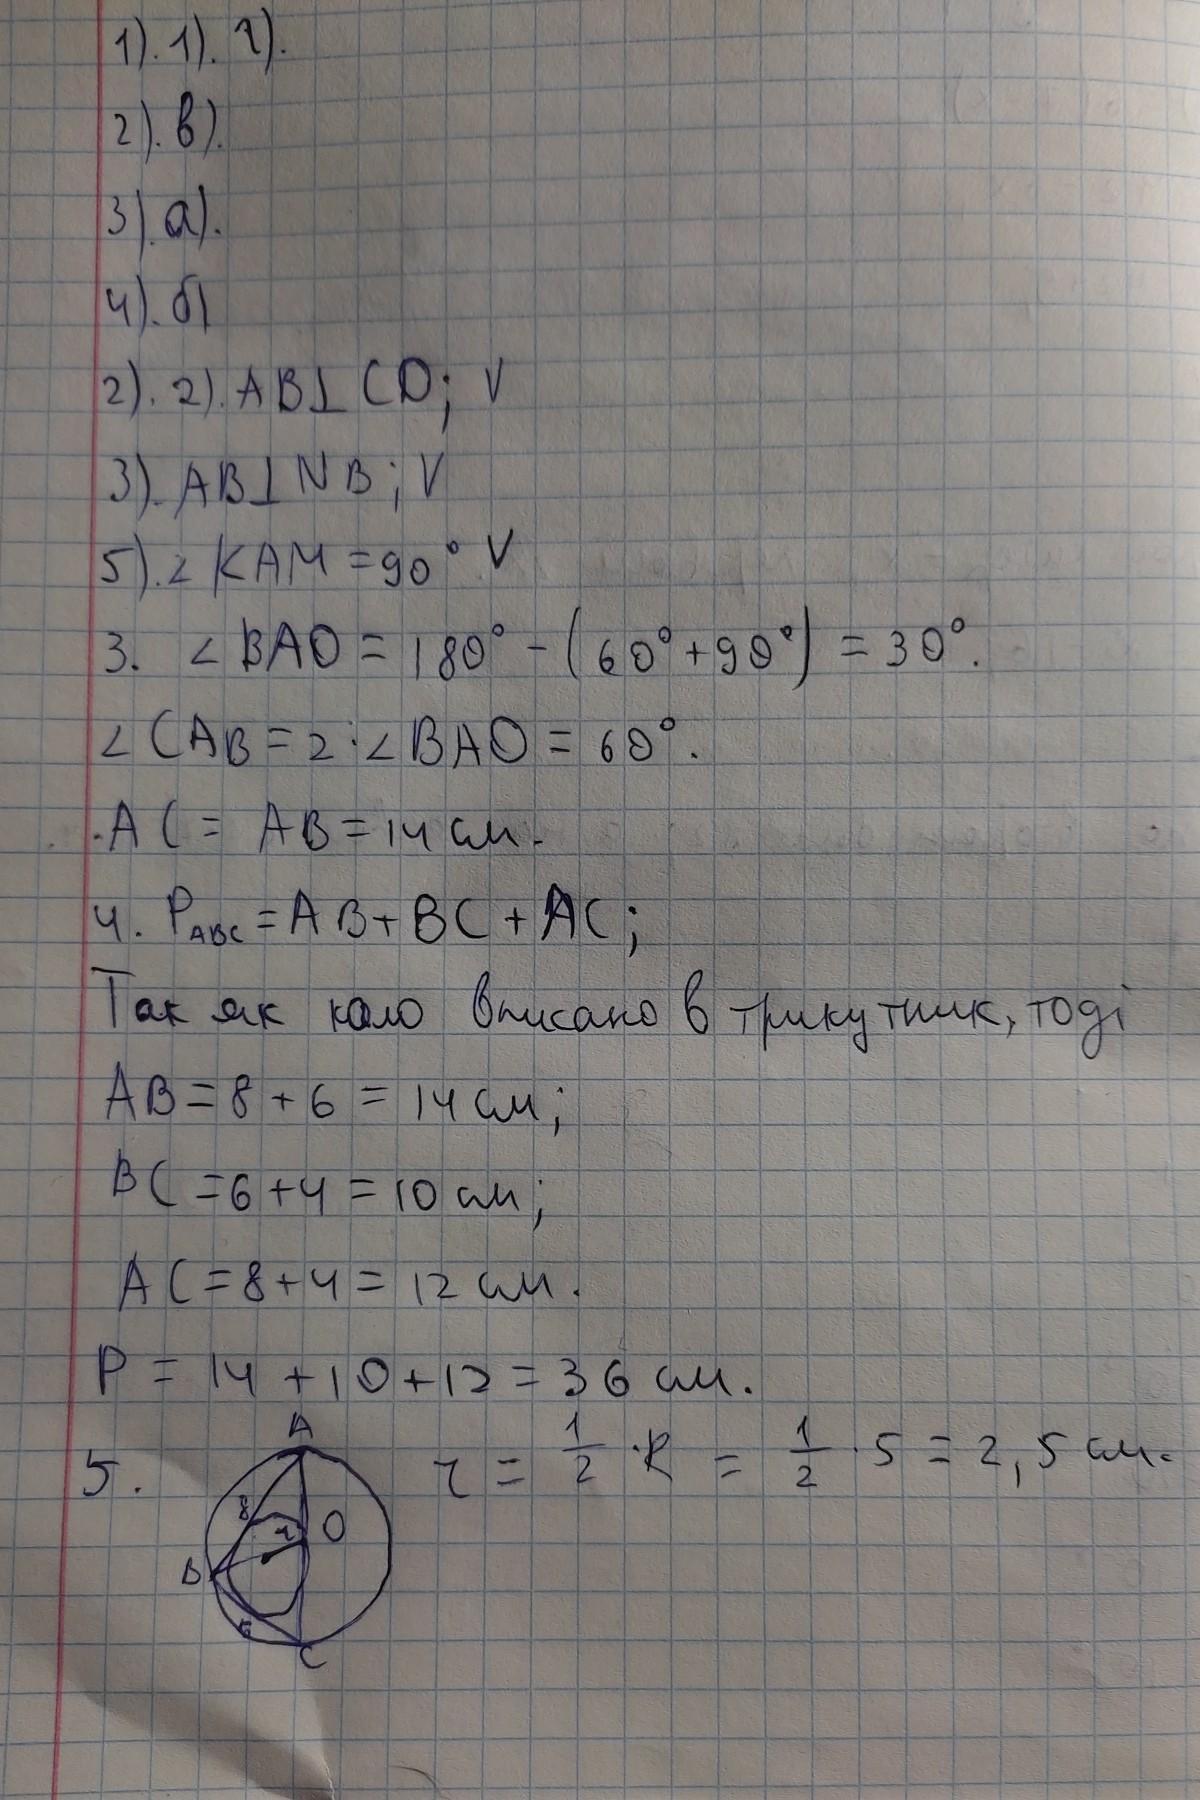 1). 1). г).
2). в).
3). а).
4). б)
2). 2). AB⊥CD; V
3). AB⊥NB; V
5). ∠KAM = 90° V
3. ∠BAO = 180° - (60° + 90°) = 30°.
∠CAB = 2·∠BAO = 60°.
AC = AB = 14 см.
4. P_ABC = AB + BC + AC;
Так як коло вписано в трикутник, тоді
AB = 8 + 6 = 14 см;
BC = 6 + 4 = 10 см;
AC = 8 + 4 = 12 см.
P = 14 + 10 + 12 = 36 см.
A
5. r = 1/2 · R = 1/2 · 5 = 2,5 см.
8 r O
B
6
C